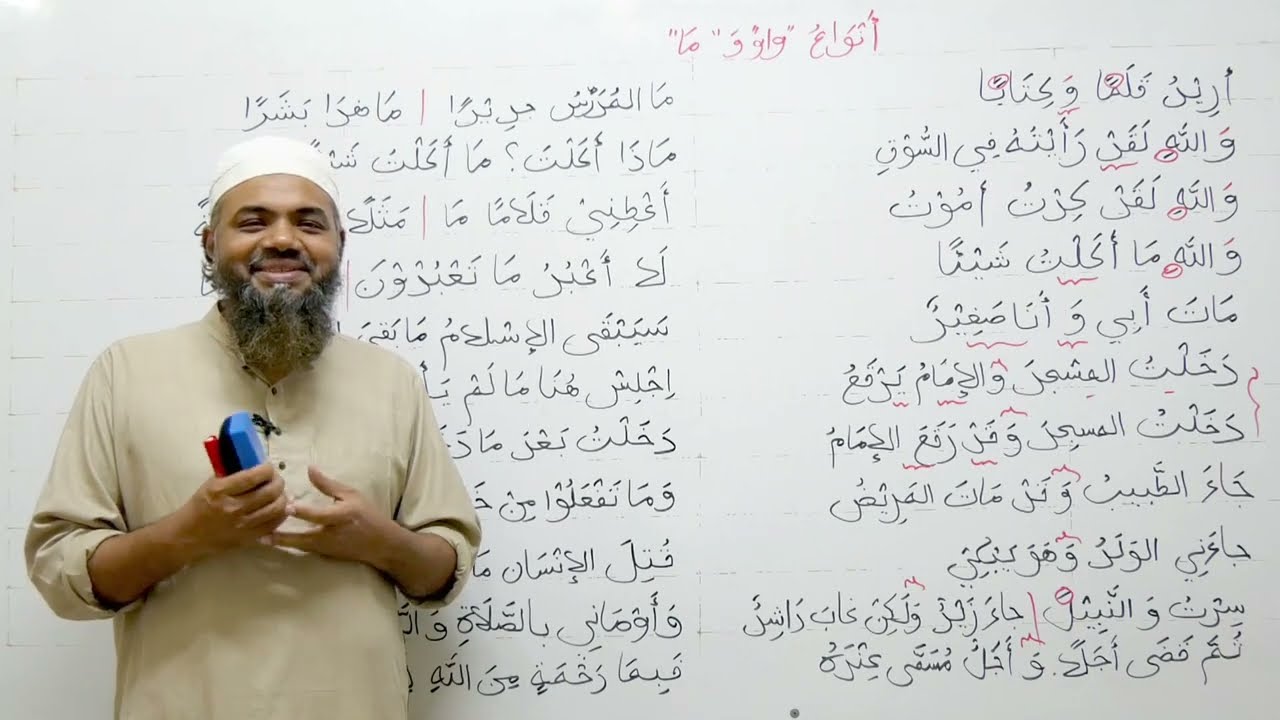 أَنْوَاعُ "وَاوْ وَ" مَا"
أُرِيْدُ قَلَمًا وَ كِتَابًا
وَ اللهِ لَقَدْ رَأَيْتُهُ فِي السُّوْقِ
وَ اللهِ لَقَدْ كِدْتُ أَمُوْتُ
وَ اللهِ مَا أَكَلْتُ شَيْئًا
مَاتَ أَبِي وَ أَنَا صَغِيْرٌ
دَخَلْتُ المسْجِدَ وَالإِمَامُ يَرْكَعُ
دَخَلْتُ المسجِدَ وَ قَدْ رَكَعَ الإِمَامُ
جَاءَ الطَّبِيبُ وَ قَدْ مَاتَ المَرِيْضُ
جاءَنِي الوَلَدُ وَ هُوَ يَبْكِيْ
سِرْتُ وَ النِّيْلَ | جاءَ زَيْدٌ وَلَكِنْ غابَ رَاشِدٌ
ثُمَّ قَضَى أَجَلًا. وَ أَجَلٌ مُسَمًّى عِنْدَهُ
مَا المُدَرِّسُ جدِيْدًا | مَا هٰذَا بَشَرًا
مَاذَا أَكَلْتَ؟ مَا أَكَلْتُ
أَعْطِنِيْ قَلَمًا مَا | مَثَلًا
لَا أَعْبُدُ مَا تَعْبُدُوْنَ |
سَيَبْقَى الإِسْلامُ مَا بَقِيَ
اِجْلِسْ هُنَا مَا لَمْ
دَخَلْتُ بَعْدَ مَا
وَ مَا تَفْعَلُوْا مِنْ
قُتِلَ الإِنْسَان
وَ أَوْصَانِي بالصَّلَاةِ وَ
فَبِمَا رَحْمَةٍ مِنَ اللَّهِ